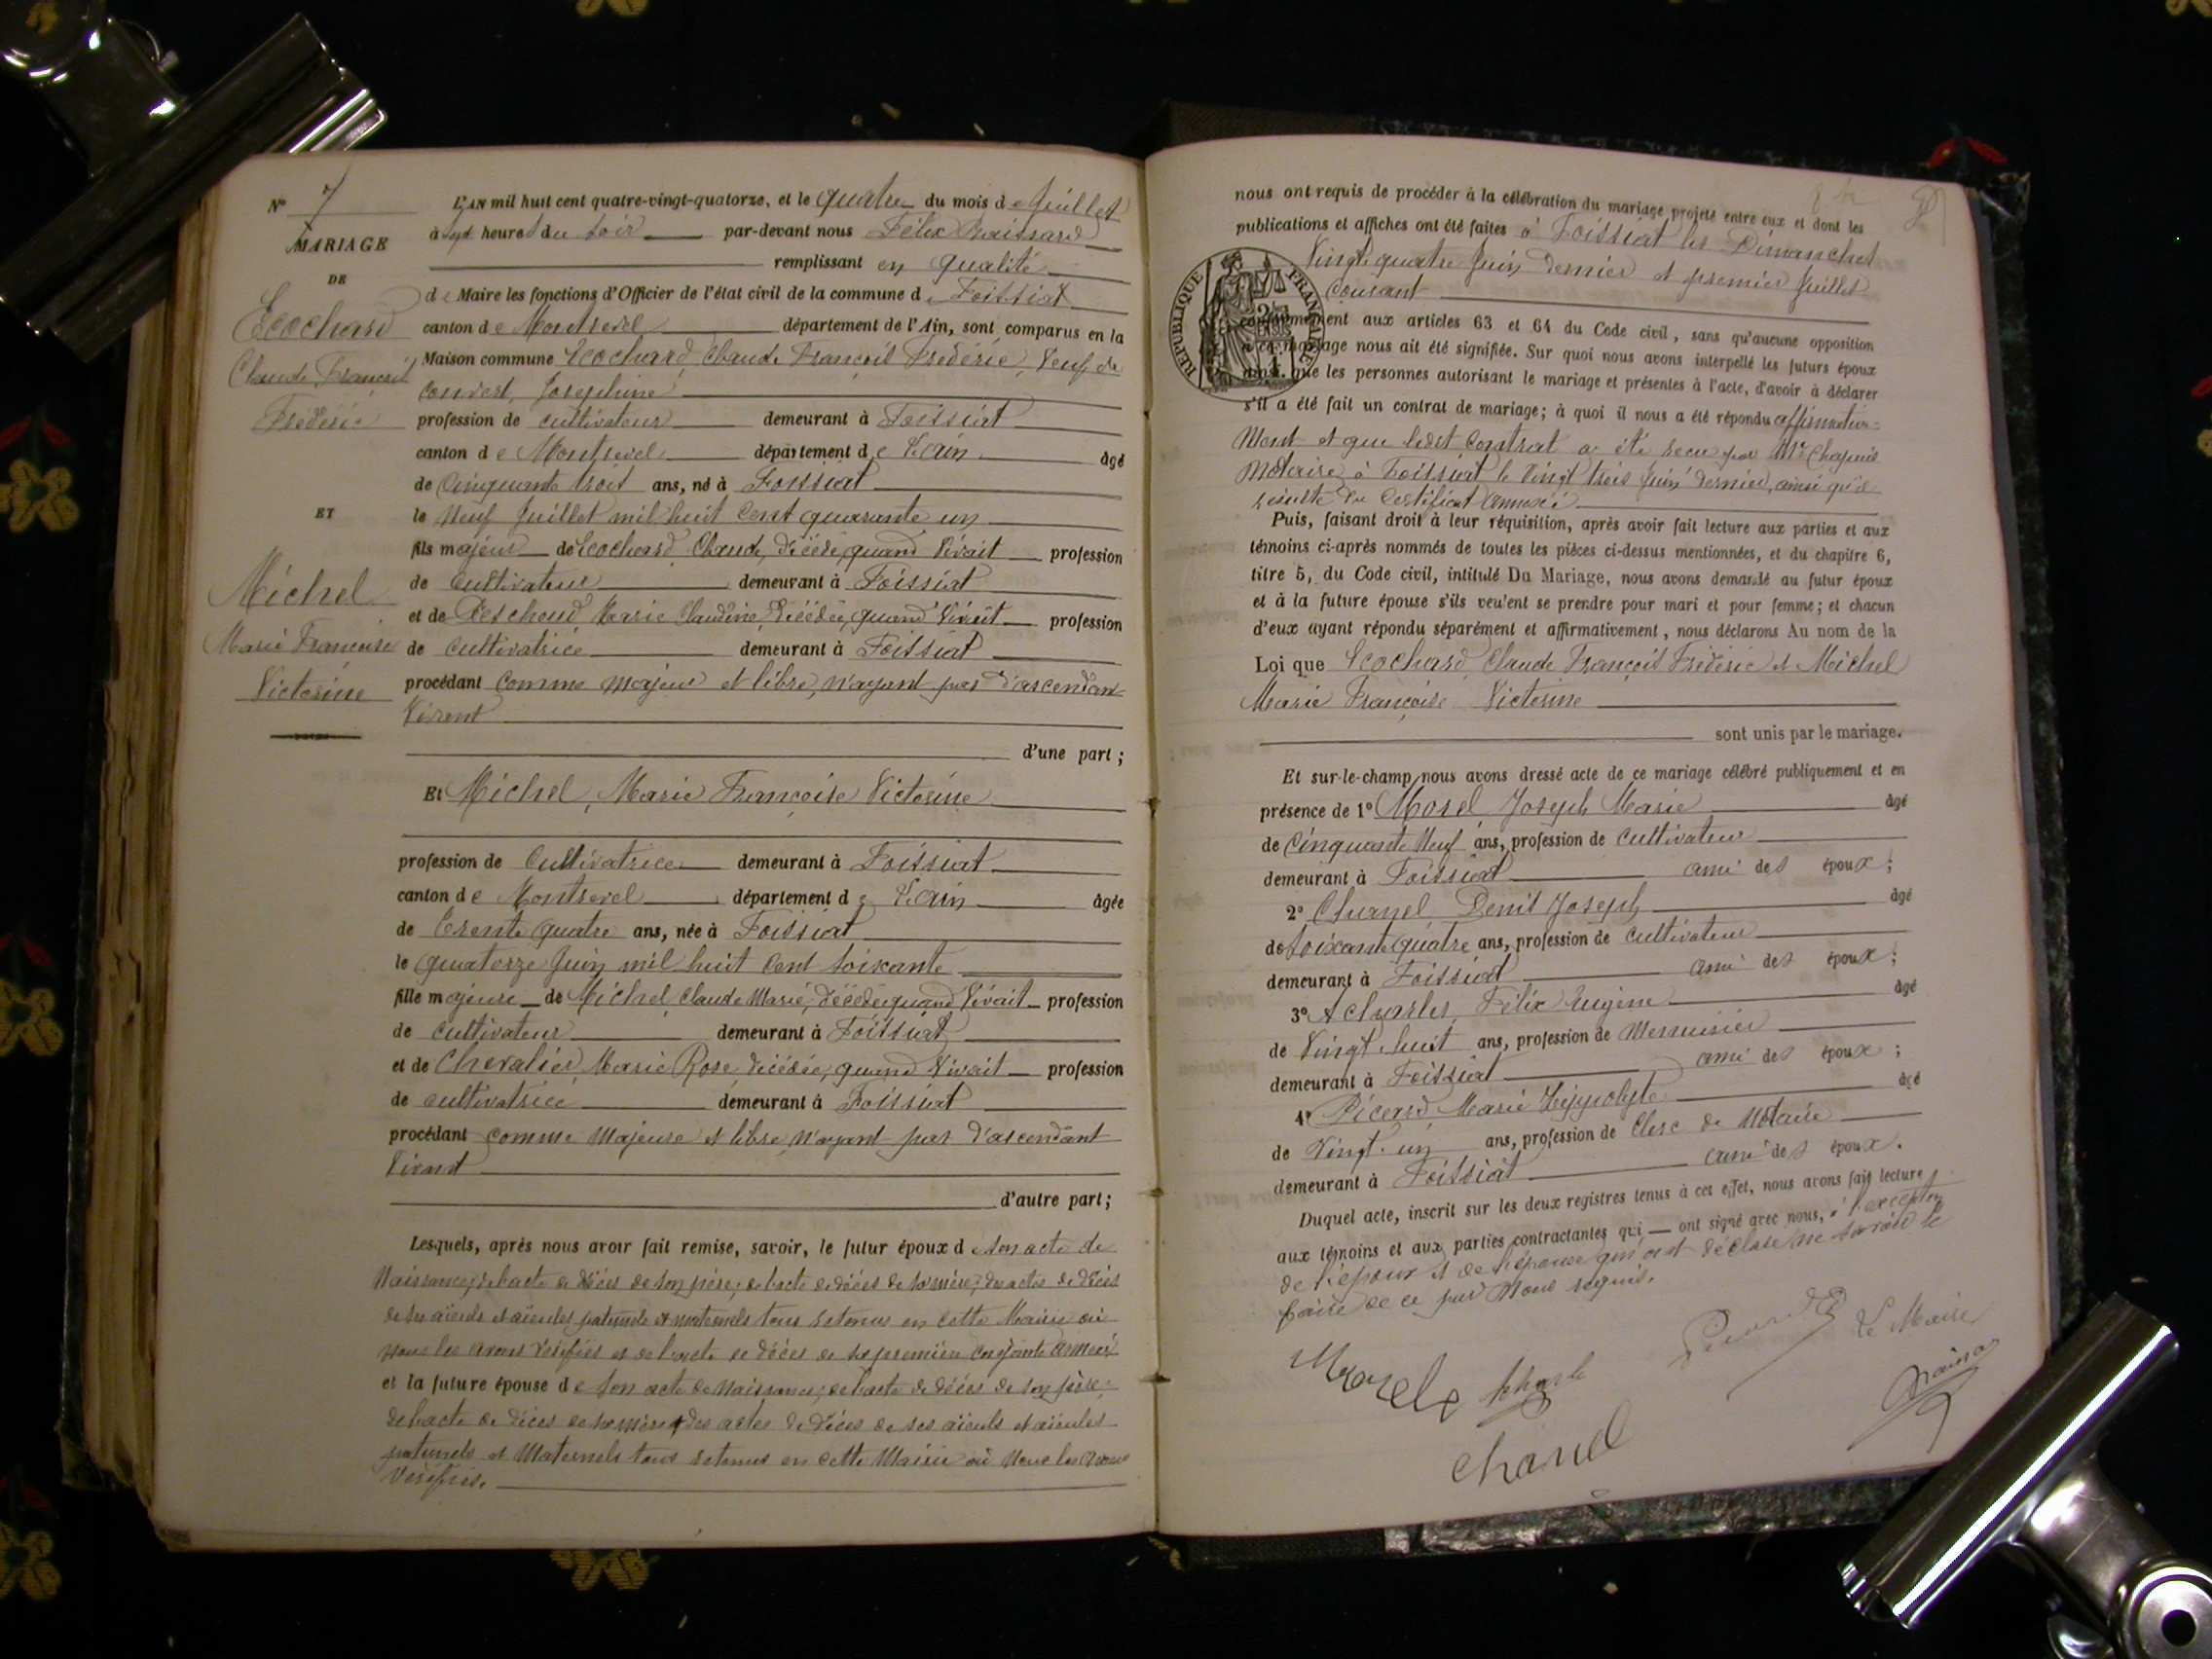 N° 7
MARIAGE
DE
Ecochard
Claude François
Frédéric
ET
Michel
Marie Françoise
Victorine
L'AN mil huit cent quatre-vingt-quatorze, et le quatre du mois de Juillet
à sept heures du soir par-devant nous Félix
remplissant en qualité
de Maire les fonctions d'Officier de l'état civil de la commune de Foissiat
canton de Montrevel département de l'Ain, sont comparus en la
Maison commune Ecochard, Claude François Frédéric, Veuf de
Convert, Josephine
profession de cultivateur demeurant à Foissiat
canton de Montrevel département de l'Ain âgé
de Cinquante trois ans, né à Foissiat
le Neuf Juillet mil huit Cent quarante un
fils majeur de Ecochard Claude, décédé, quand Vivait profession
de Cultivateur demeurant à Foissiat
et de Marie Claudine, Décédée, quand Vivait profession
de cultivatrice demeurant à Foissiat
procédant comme majeur et libre, n'ayant pas d'ascendant
Vivant
d'une part ;
Et Michel, Marie Françoise Victorine
profession de Cultivatrice demeurant à Foissiat
canton de Montrevel département de l'Ain âgée
de Trente quatre ans, née à Foissiat
le quatorze Juin mil huit Cent soixante
fille majeure de Michel Claude Marie, décédé quand Vivait profession
de cultivateur demeurant à Foissiat
et de Chevalier Marie Rose, décédée, quand Vivait profession
de cultivatrice demeurant à Foissiat
procédant comme Majeure et libre, n'ayant pas d'ascendant
Vivant
d'autre part ;
Lesquels, après nous avoir fait remise, savoir, le futur époux de son acte de
Naissance, de l'acte de décès de son père, de l'acte de décès de sa mère, des actes de décès
de ses aïeuls et aïeules paternels et maternels tous retenus en cette Mairie où
nous les avons vérifiés et de l'acte de décès de sa première conjointe annexé
et la future épouse de son acte de Naissance, de l'acte de décès de son père,
de l'acte de décès de sa mère, des actes de décès de ses aïeuls et aïeules
paternels et Maternels tous retenus en cette Mairie où Nous les avons
Vérifiés.
nous ont requis de procéder à la célébration du mariage projeté entre eux et dont les
publications et affiches ont été faites à Foissiat les Dimanches
Vingt quatre Juin dernier et premier Juillet
Courant
RÉPUBLIQUE FRANÇAISE
conformément aux articles 63 et 64 du Code civil, sans qu'aucune opposition
à ce mariage nous ait été signifiée. Sur quoi nous avons interpellé les futurs époux
ainsi que les personnes autorisant le mariage et présentes à l'acte, d'avoir à déclarer
s'il a été fait un contrat de mariage; à quoi il nous a été répondu affirmative-
Ment et que ledit Contrat a été recu par Me Chapuis
Notaire à Foissiat le Vingt trois Juin dernier, ainsi qu'il
résulte du Certificat annexé.
Puis, faisant droit à leur réquisition, après avoir fait lecture aux parties et aux
témoins ci-après nommés de toutes les pièces ci-dessus mentionnées, et du chapitre 6,
titre 5, du Code civil, intitulé Du Mariage, nous avons demandé au futur époux
et à la future épouse s'ils veulent se prendre pour mari et pour femme; et chacun
d'eux ayant répondu séparément et affirmativement, nous déclarons Au nom de la
Loi que Ecochard, Claude François Frédéric et Michel
Marie Françoise Victorine
sont unis par le mariage.
Et sur-le-champ nous avons dressé acte de ce mariage célébré publiquement et en
présence de 1° Morel Joseph Marie âgé
de Cinquante Neuf ans, profession de Cultivateur
demeurant à Foissiat ami des époux ;
2° Charnel Denis Joseph âgé
de Soixante quatre ans, profession de Cultivateur
demeurant à Foissiat ami des époux ;
3° Félix Eugène âgé
de Vingt huit ans, profession de Menuisier
demeurant à Foissiat ami des époux ;
4° Picard Marie Hippolyte âgé
de Vingt un ans, profession de Clerc de Notaire
demeurant à Foissiat ami des époux.
Duquel acte, inscrit sur les deux registres tenus à cet effet, nous avons fait lecture
aux témoins et aux parties contractantes qui ont signé avec nous, à l'exception
de l'époux et de l'épouse qui ont déclaré ne savoir le
faire de ce par Nous requis.
Morel
Le Maire
Charnel